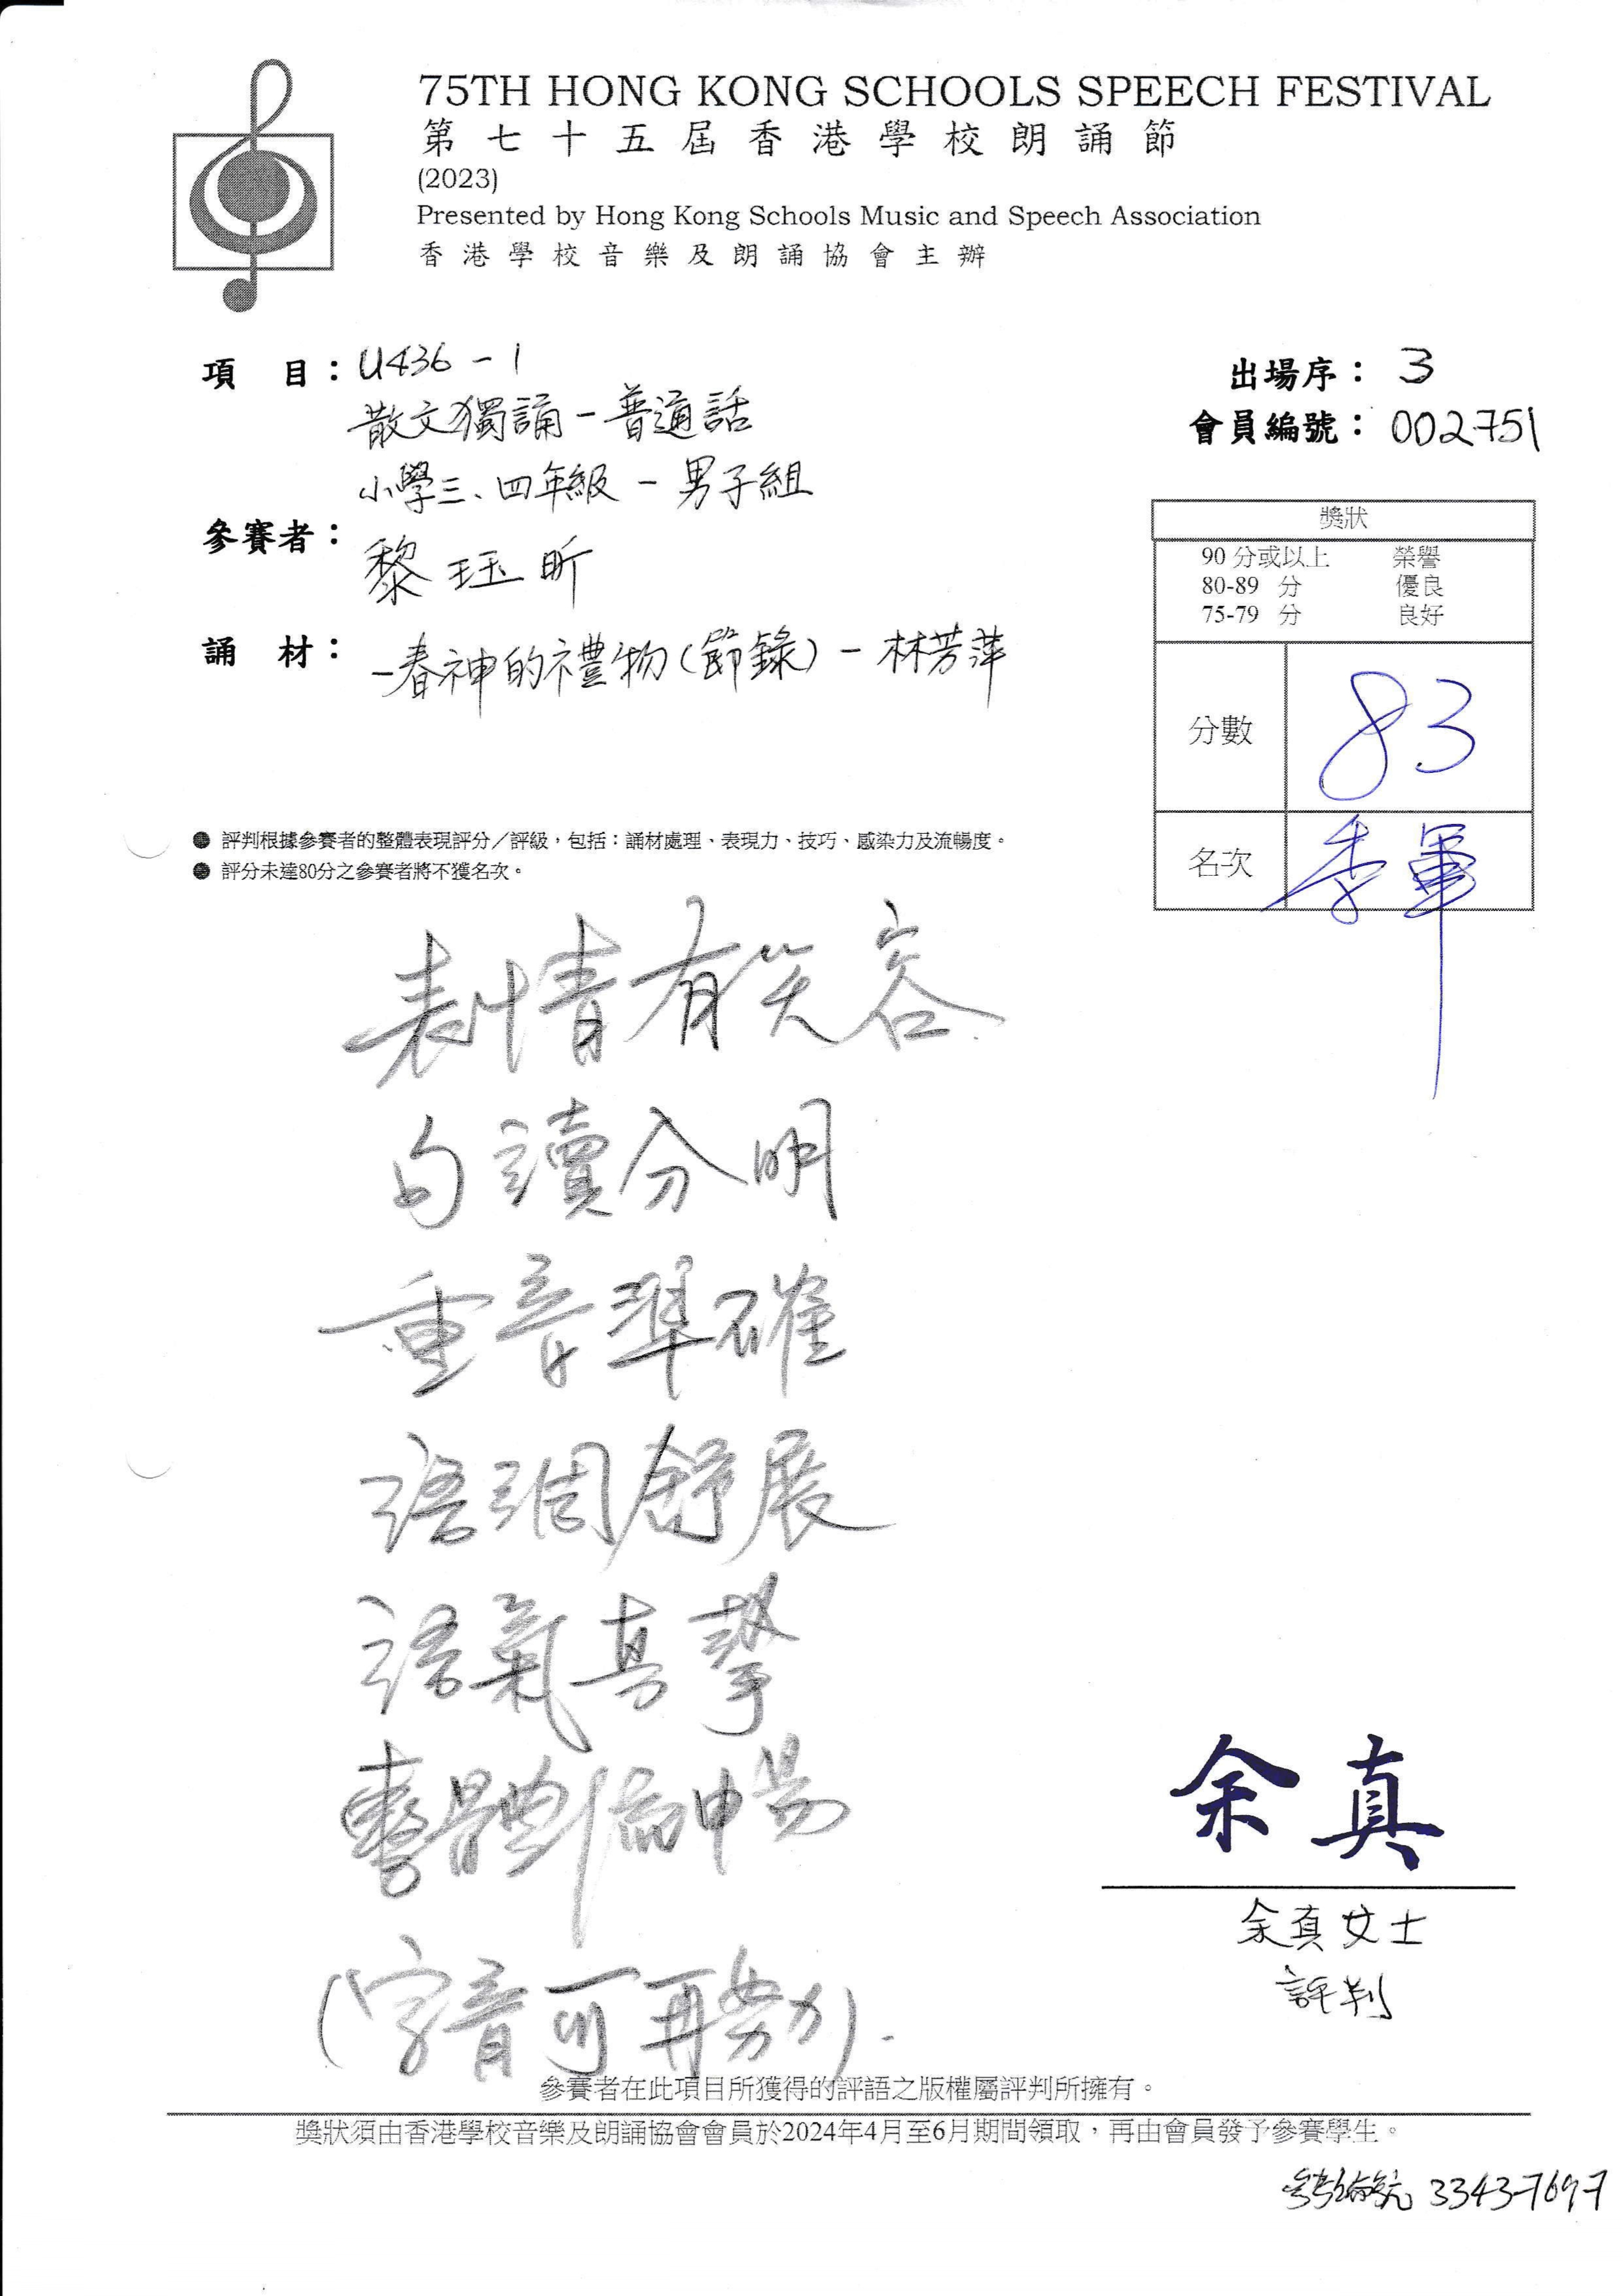 75TH HONG KONG SCHOOLS SPEECH FESTIVAL
第七十五屆香港學校朗誦節
(2023)
Presented by Hong Kong Schools Music and Speech Association
香港學校音樂及朗誦協會主辦
項 目： U436 - 1
散文獨誦 - 普通話
小學三、四年級 - 男子組
出場序： 3
會員編號： 002751
參賽者： 黎珏昕
誦 材： -春神的禮物(節錄) - 林芳萍
獎狀
90 分或以上 榮譽
80-89 分 優良
75-79 分 良好
分數 83
名次 季軍
● 評判根據參賽者的整體表現評分／評級，包括：誦材處理、表現力、技巧、感染力及流暢度。
● 評分未達80分之參賽者將不獲名次。
表情有笑容
句讀分明
重音準確
語調舒展
語氣真摯
整體流暢
(字音可再努力).
余真
余真女士
評判
參賽者在此項目所獲得的評語之版權屬評判所擁有。
獎狀須由香港學校音樂及朗誦協會會員於2024年4月至6月期間領取，再由會員發予參賽學生。
參賽編號 3343-7697